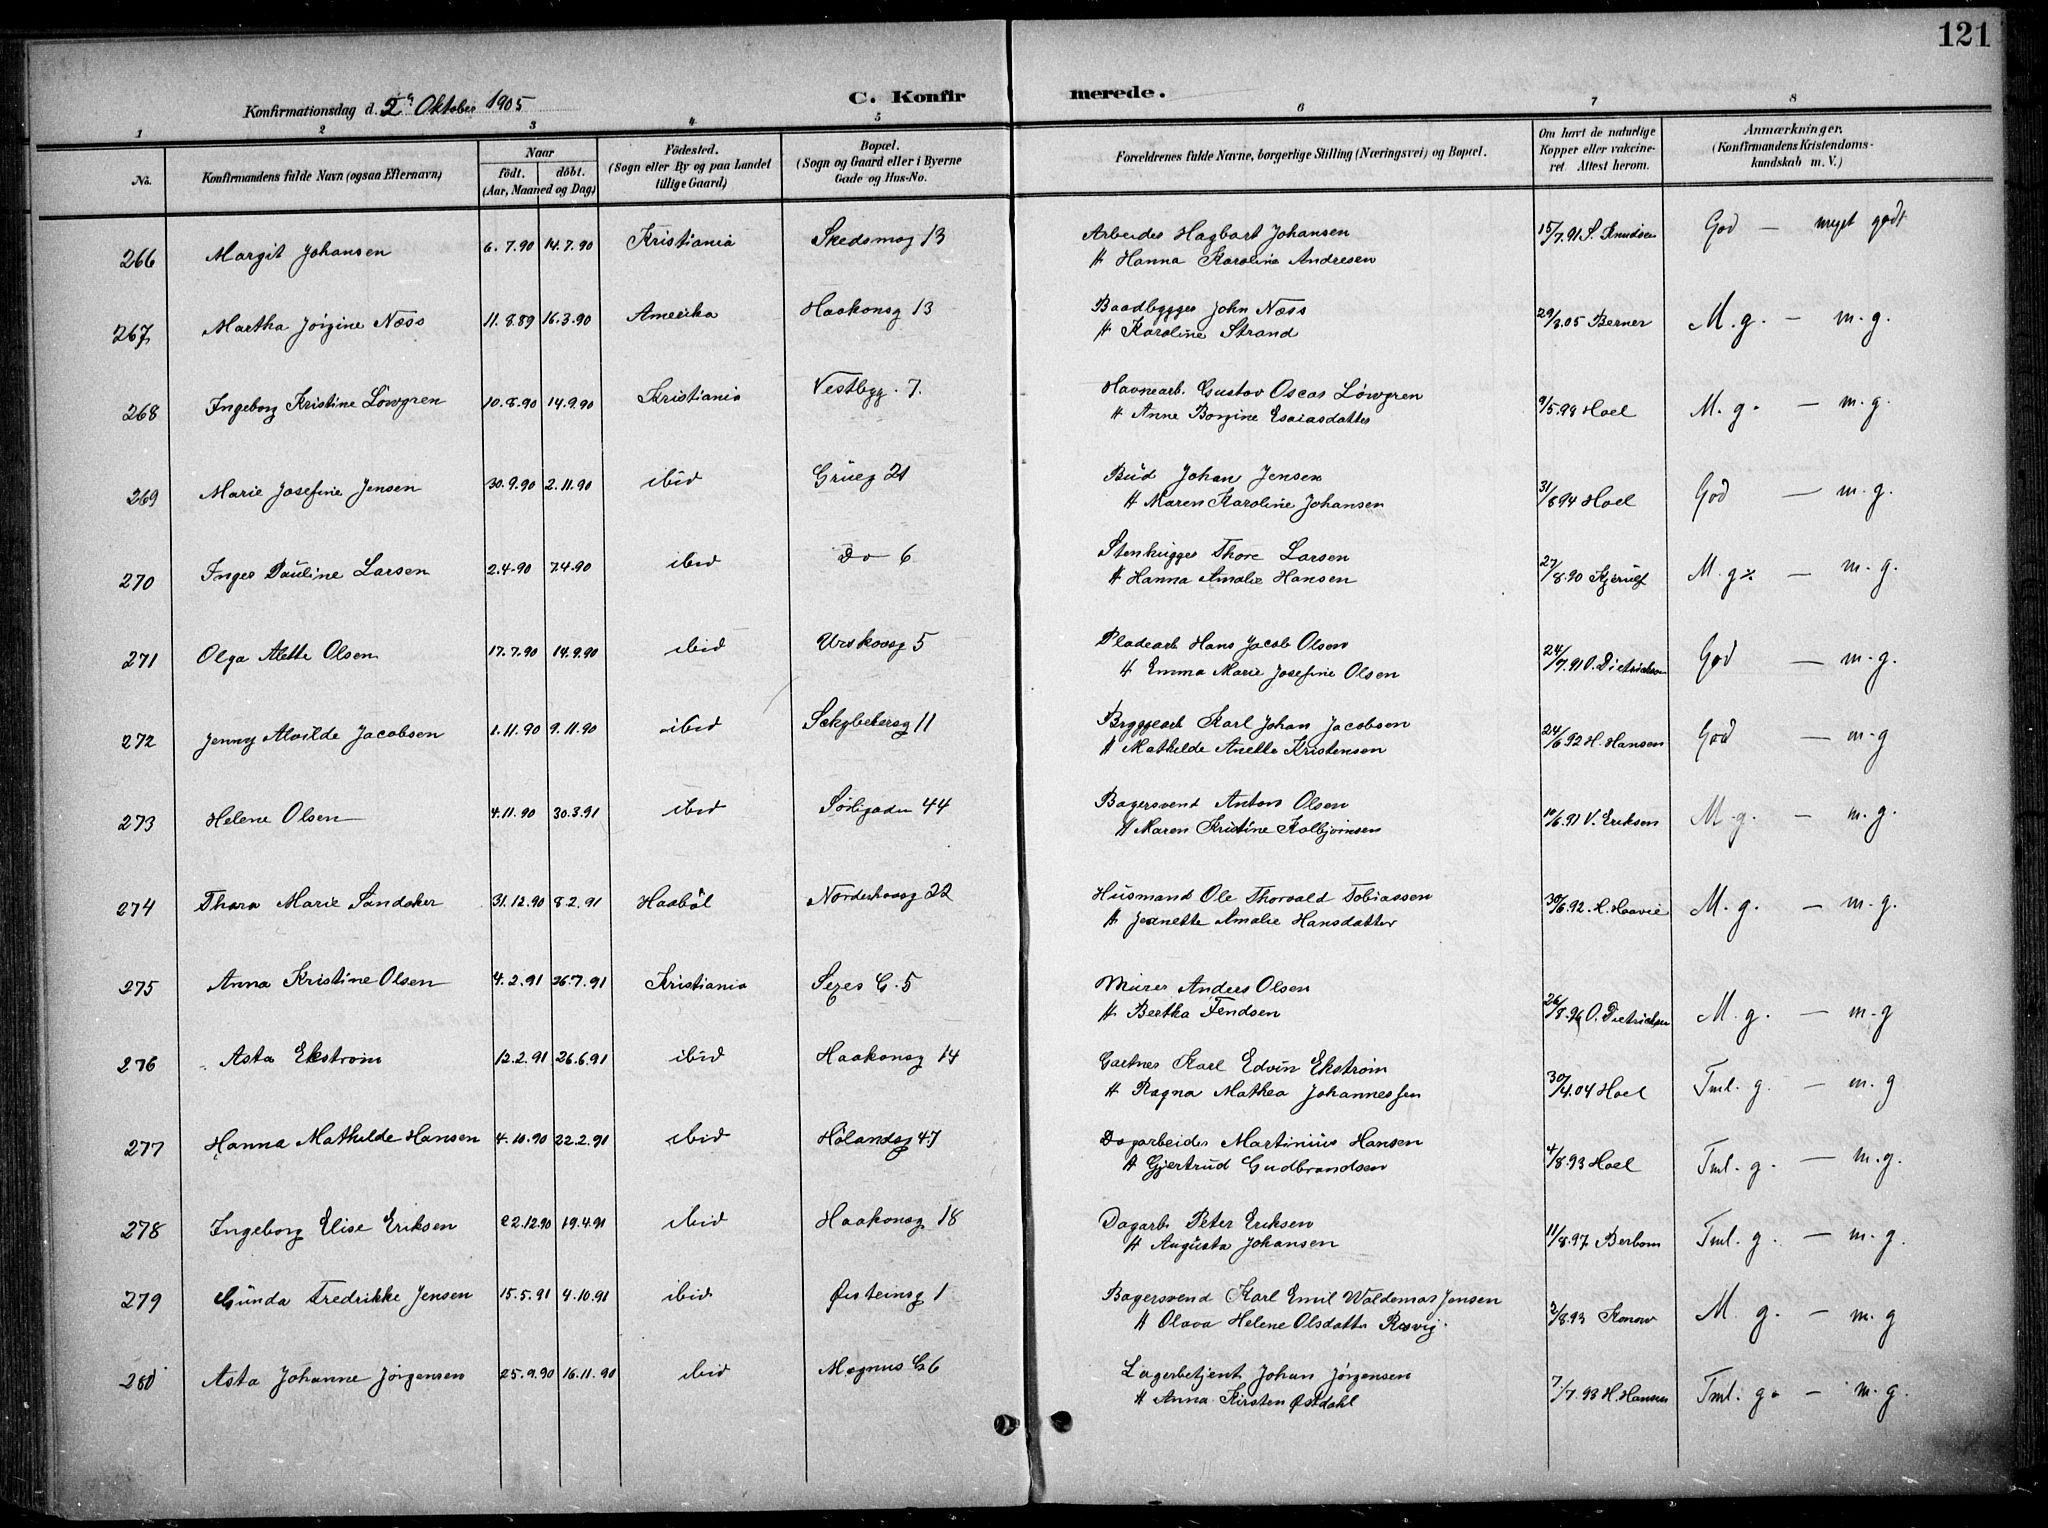 121
Konfirmationsdag d. 2 Oktober 1905 C. Konfirmerede.
1 2 3 4 5 6 7 8
No. Konfirmandens fulde Navn (ogsaa Efternavn) Naar født. døbt. (Aar, Maaned og Dag) Födested. (Sogn eller By og paa Landet tillige Gaard) Bopæl. (Sogn og Gaard eller i Byerne Gade og Hus-No. Forældrenes fulde Navne, borgerlige Stilling (Næringsvei) og Bopæl. Om havt de naturlige Kopper eller vakcineret Attest herom. Anmærkninger. (Konfirmandens Kristendomskundskab m. V.)
266 Margit Johansen 6.7.90 14.7.90 Kristiania Skedsmog 13 Arbeider Hagbart Johansen 15/7.91 S. Knudsen God — meget godt
H Hanna Karoline Andresen
267 Martha Jørgine Næss 11.8.89 16.3.90 Amerika Haakonsg 13 Baadbygger John Næss 29/3.05 Berner M.g. — m.g.
H Karoline Strand
268 Ingeborg Kristine Löwgren 10.8.90 14.9.90 Kristiania Vestbyg. 7. Havnearb. Gustav Oscar Löwgren 9/5.99 Hoel M.g. — m.g.
H Anne Borgine Esaiasdatter
269 Marie Josefine Jensen 30.9.90 2.11.90 ibid Grüeg 21 Bud Johan Jensen 31/8 94 Hoel God — m.g.
H Maren Karoline Johansen
270 Inger Pauline Larsen 2.4.90 7.4.90 ibid Do 6 Stenhugger Thore Larsen 27/8.90 Kjerulf M.g. — m.g.
H Hanna Amalie Hansen
271 Olga Alette Olsen 17.7.90 14.9.90 ibid Urskoug 5 Pladearb Hans Jacob Olsen 24/7.91 O. Dietrichson God — m.g.
H Emma Marie Josefine Olsen
272 Jenny Alvilde Jacobsen 1.11.90 9.11.90 ibid 11 Bryggearb Karl Johan Jacobsen 24/6 92 H. Hansen God — m.g
H Mathilde Anette Kristensen
273 Helene Olsen 4.11.90 30.3.91 ibid Sørligaden 44 Bagersvend Anton Olsen 10/6.91 V. Eriksen M.g. — m.g.
H Maren Kristine Kolbjørnsen
274 Thora Marie Sandaker 31.12.90 8.2.91 Haabøl Norderhovsg 22 Husmand Ole Thorvald Tobiassen 30/6.92. H. Haavie M.g. — m.g.
H Jeanette Amalie Hansdatter
275 Anna Kristine Olsen 4.2.91 26.7.91 Kristiania G. 5 Murer Anders Olsen 26/8 O. Dietrichson M.g. — m.g
H Bertha Fendsen
276 Asta Ekstrøm 12.2.91 26.6.91 ibid Haakonsg 14 Gartner Karl Edvin Ekstrøm 30/4.04 Hoel Tml. g. — m.g
H Ragna Mathea Johannessen
277 Hanna Mathilde Hansen 4.10.90 22.2.91 ibid Hølandsg 47 Dagarbeider Martinius Hansen 4/8.93 Hoel Tml. g. — m.g.
H Gjertrud Gudbrandsen
278 Ingeborg Elise Eriksen 22.12.90 19.4.91 ibid Haakonsg 18 Dagarb Peter Eriksen 11/8.97 Berbom Tml. g. — m.g.
H Augusta Johansen
279 Gunda Fredrikke Jensen 15.5.91 4.10.91 ibid Øisteinsg 1 Bagersvend Karl Emil Waldemar Jensen 2/8.93 Konow M.g. — m.g
H Olava Helene Olsdatter Rosvig
280 Asta Johanne Jørgensen 25.9.90 16.11.90 ibid Magnus G 6 Lagerbetjent Johan Jørgensen 7/7.93 H. Hansen Tml. g. — m.g.
H Anna Kirsten Østdahl